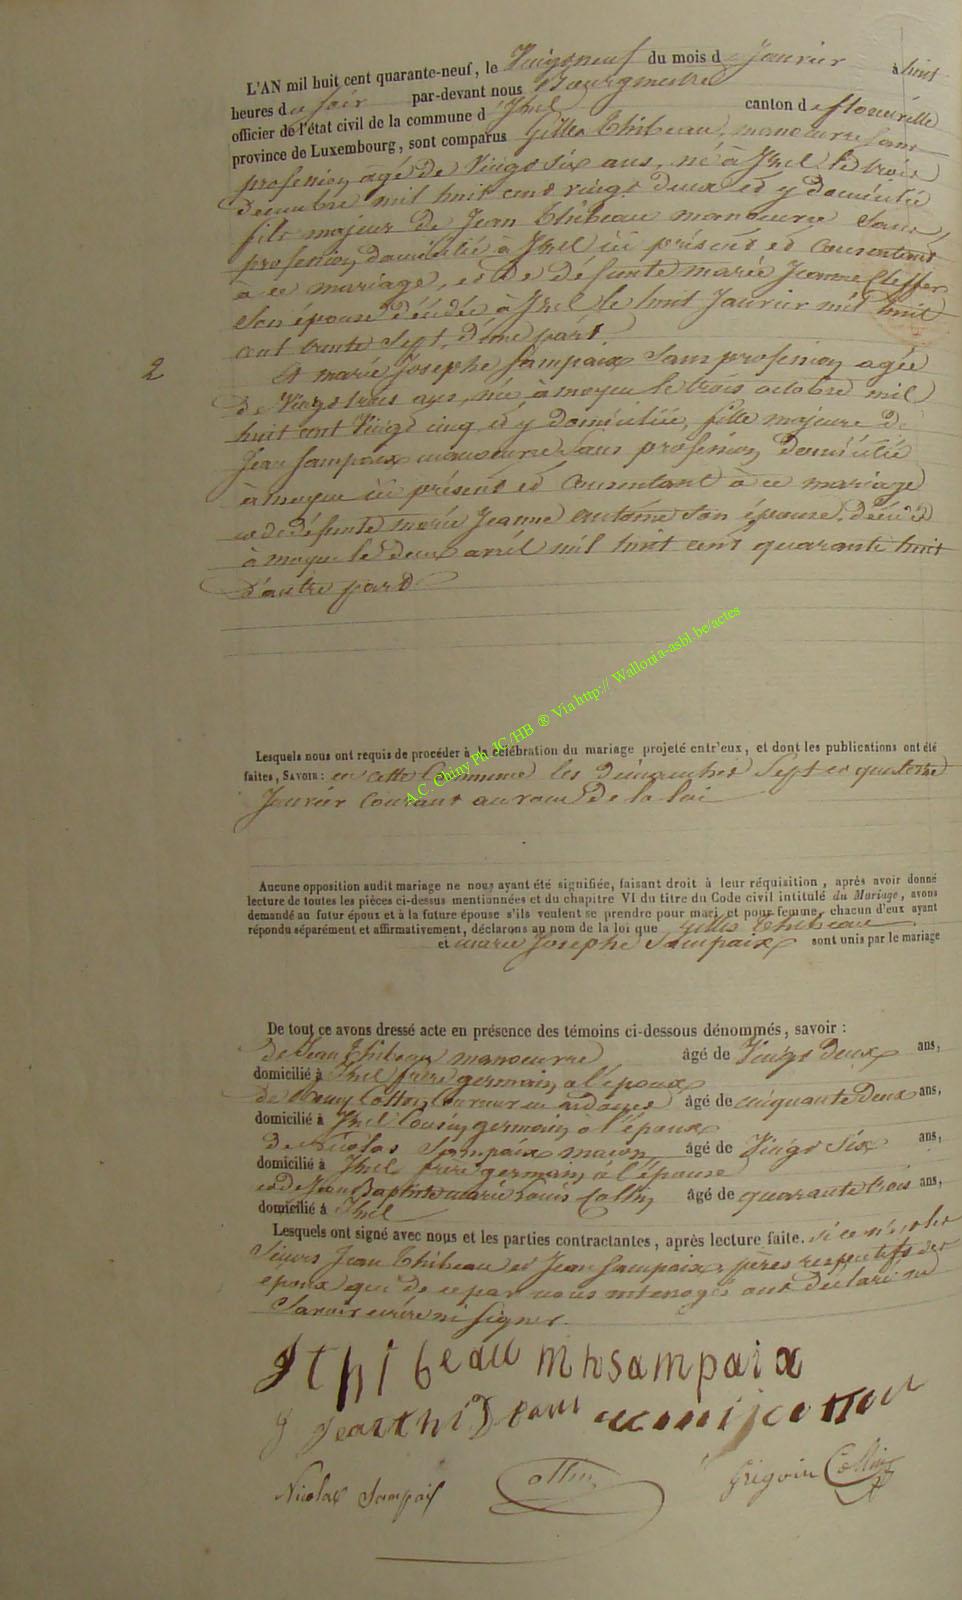 L'AN mil huit cent quarante-neuf, le Vingtneuf du mois de Janvier à huit
heures du soir par-devant nous Bourgmestre
officier de l'état civil de la commune d'Izel canton de florenville
province de Luxembourg, sont comparus Gilles Thibeau, manoeuvre sans
profession agé de Vingt six ans, né à Izel le trois
Decembre mil huit cent vingt deux et y domicilié
fils majeur de Jean Thibeau manoeuvre sans
profession, domicilié à Izel ici présent et consentant
à ce mariage, et de défunte marie Jeanne
son épouse décédée à Izel le huit Janvier mil huit
cent trente sept, d'une part.
2
Et marie Josephe Sampaix sans profession agée
de Vingt trois ans, née à moyen le trois octobre mil
huit cent Vingt cinq et y domiciliée, fille majeure de
Jean Sampaix manoeuvre sans profession, domicilié
à moyen ici présent et consentant à ce mariage
et de défunte marie Jeanne son épouse, décédée
à moyen le deux avril mil huit cent quarante huit
d'autre part
A.C. Chiny Ph JC/HB ® Via http:// Wallonia-asbl.be/actes
Lesquels nous ont requis de procéder à la célébration du mariage projeté entr'eux, et dont les publications ont été
faites, SAVOIR : en cette Commune les dimanches Sept et quatorze
Janvier courant au voeu de la loi
Aucune opposition audit mariage ne nous ayant été signifiée, faisant droit à leur réquisition, après avoir donné
lecture de toutes les pièces ci-dessus mentionnées et du chapitre VI du titre du Code civil intitulé du Mariage, avons
demandé au futur époux et à la future épouse s'ils veulent se prendre pour mari et pour femme, chacun d'eux ayant
répondu séparément et affirmativement, déclarons au nom de la loi que Gilles Thibeau
et marie Josephe Sampaix sont unis par le mariage
De tout ce avons dressé acte en présence des témoins ci-dessous dénommés, savoir :
de Jean Thibeau manoeuvre âgé de Vingt deux ans,
domicilié à Izel frère germain à l'époux
de Cotton Couvreur en ardoises âgé de cinquante Deux ans,
domicilié à Izel Cousin germain à l'époux
de Nicolas Sampaix maçon, âgé de Vingt Six ans,
domicilié à Izel frère germain à l'épouse
et de Jean Baptiste marie Louis Collin âgé de quarante trois ans,
domicilié à Izel
Lesquels ont signé avec nous et les parties contractantes, après lecture faite. si ce n'est les
Sieurs Jean Thibeau et Jean Sampaix, pères respectifs des
époux qui de ce par nous interrogés ont déclaré ne
Savoir écrire ni signer.
g thibeau m h sampaix
j Jean thibeau cotton
Nicolas Sampaix Collin Grégoire Collin